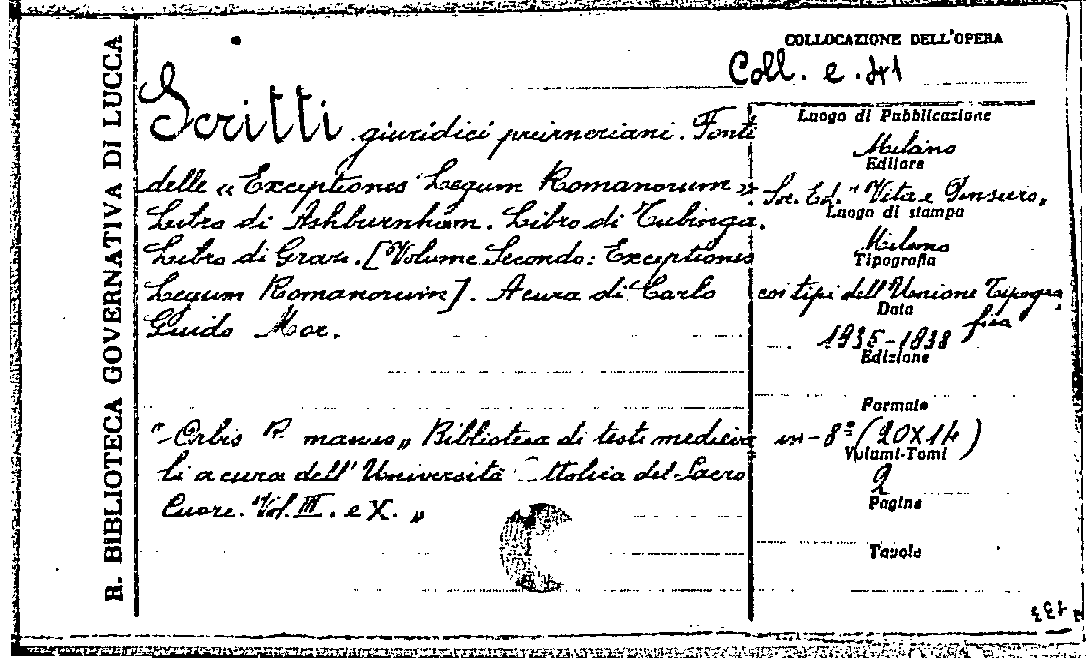 R. BIBLIOTECA GOVERNATIVA DI LUCCA
COLLOCAZIONE DELL'OPERA
Coll. e. 41
Scritti giuridici preirneriani. Fonti
delle « Exceptiones Legum Romanorum »
Libro di Ashburnham. Libro di Tubinga.
Libro di Graz. [Volume Secondo: Exceptiones
Legum Romanorum]. A cura di Carlo
Guido Mor.
"Orbis Romanus„ Biblioteca di testi medieva
li a cura dell'Università Cattolica del Sacro
Cuore. Vol. III. e X. „
Luogo di Pubblicazione
Milano
Editore
Soc. Ed. "Vita e Pensiero„
Luogo di stampa
Milano
Tipografia
coi tipi dell'Unione Tipogra
fica
Data
1935-1938
Edizione
Formato
in-8º (20x14)
Volumi-Tomi
2
Pagine
Tavole